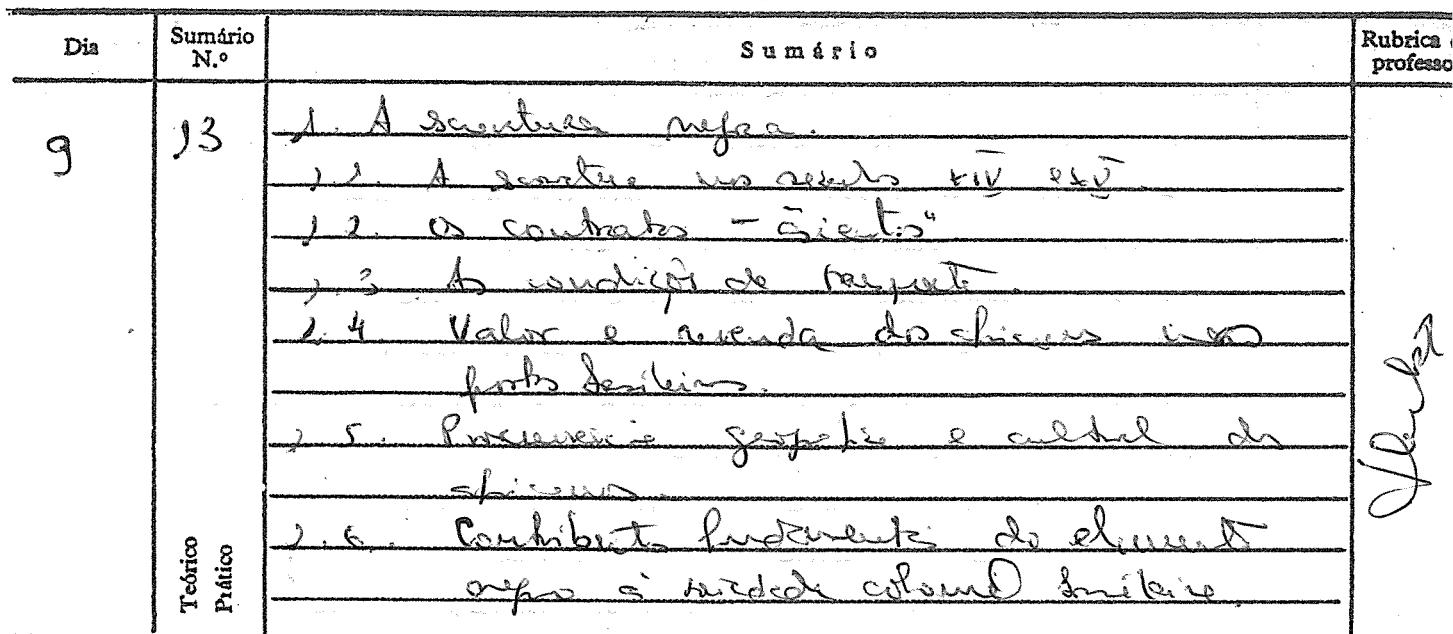 Dia
Sumário N.º
Sumário
Rubrica
professo
9
13
1. A escravatura negra.
1.1. A escravatura nos séculos XIV e XV.
1.2. Os contratos - "asientos"
1.3 As condições de transporte.
1.4 Valor e revenda dos africanos nos
portos brasileiros.
1.5. Proveniência geográfica e cultural dos
africanos.
1.6. Contributos fundamentais do elemento
negro à sociedade colonial brasileira.
Teórico
Prático